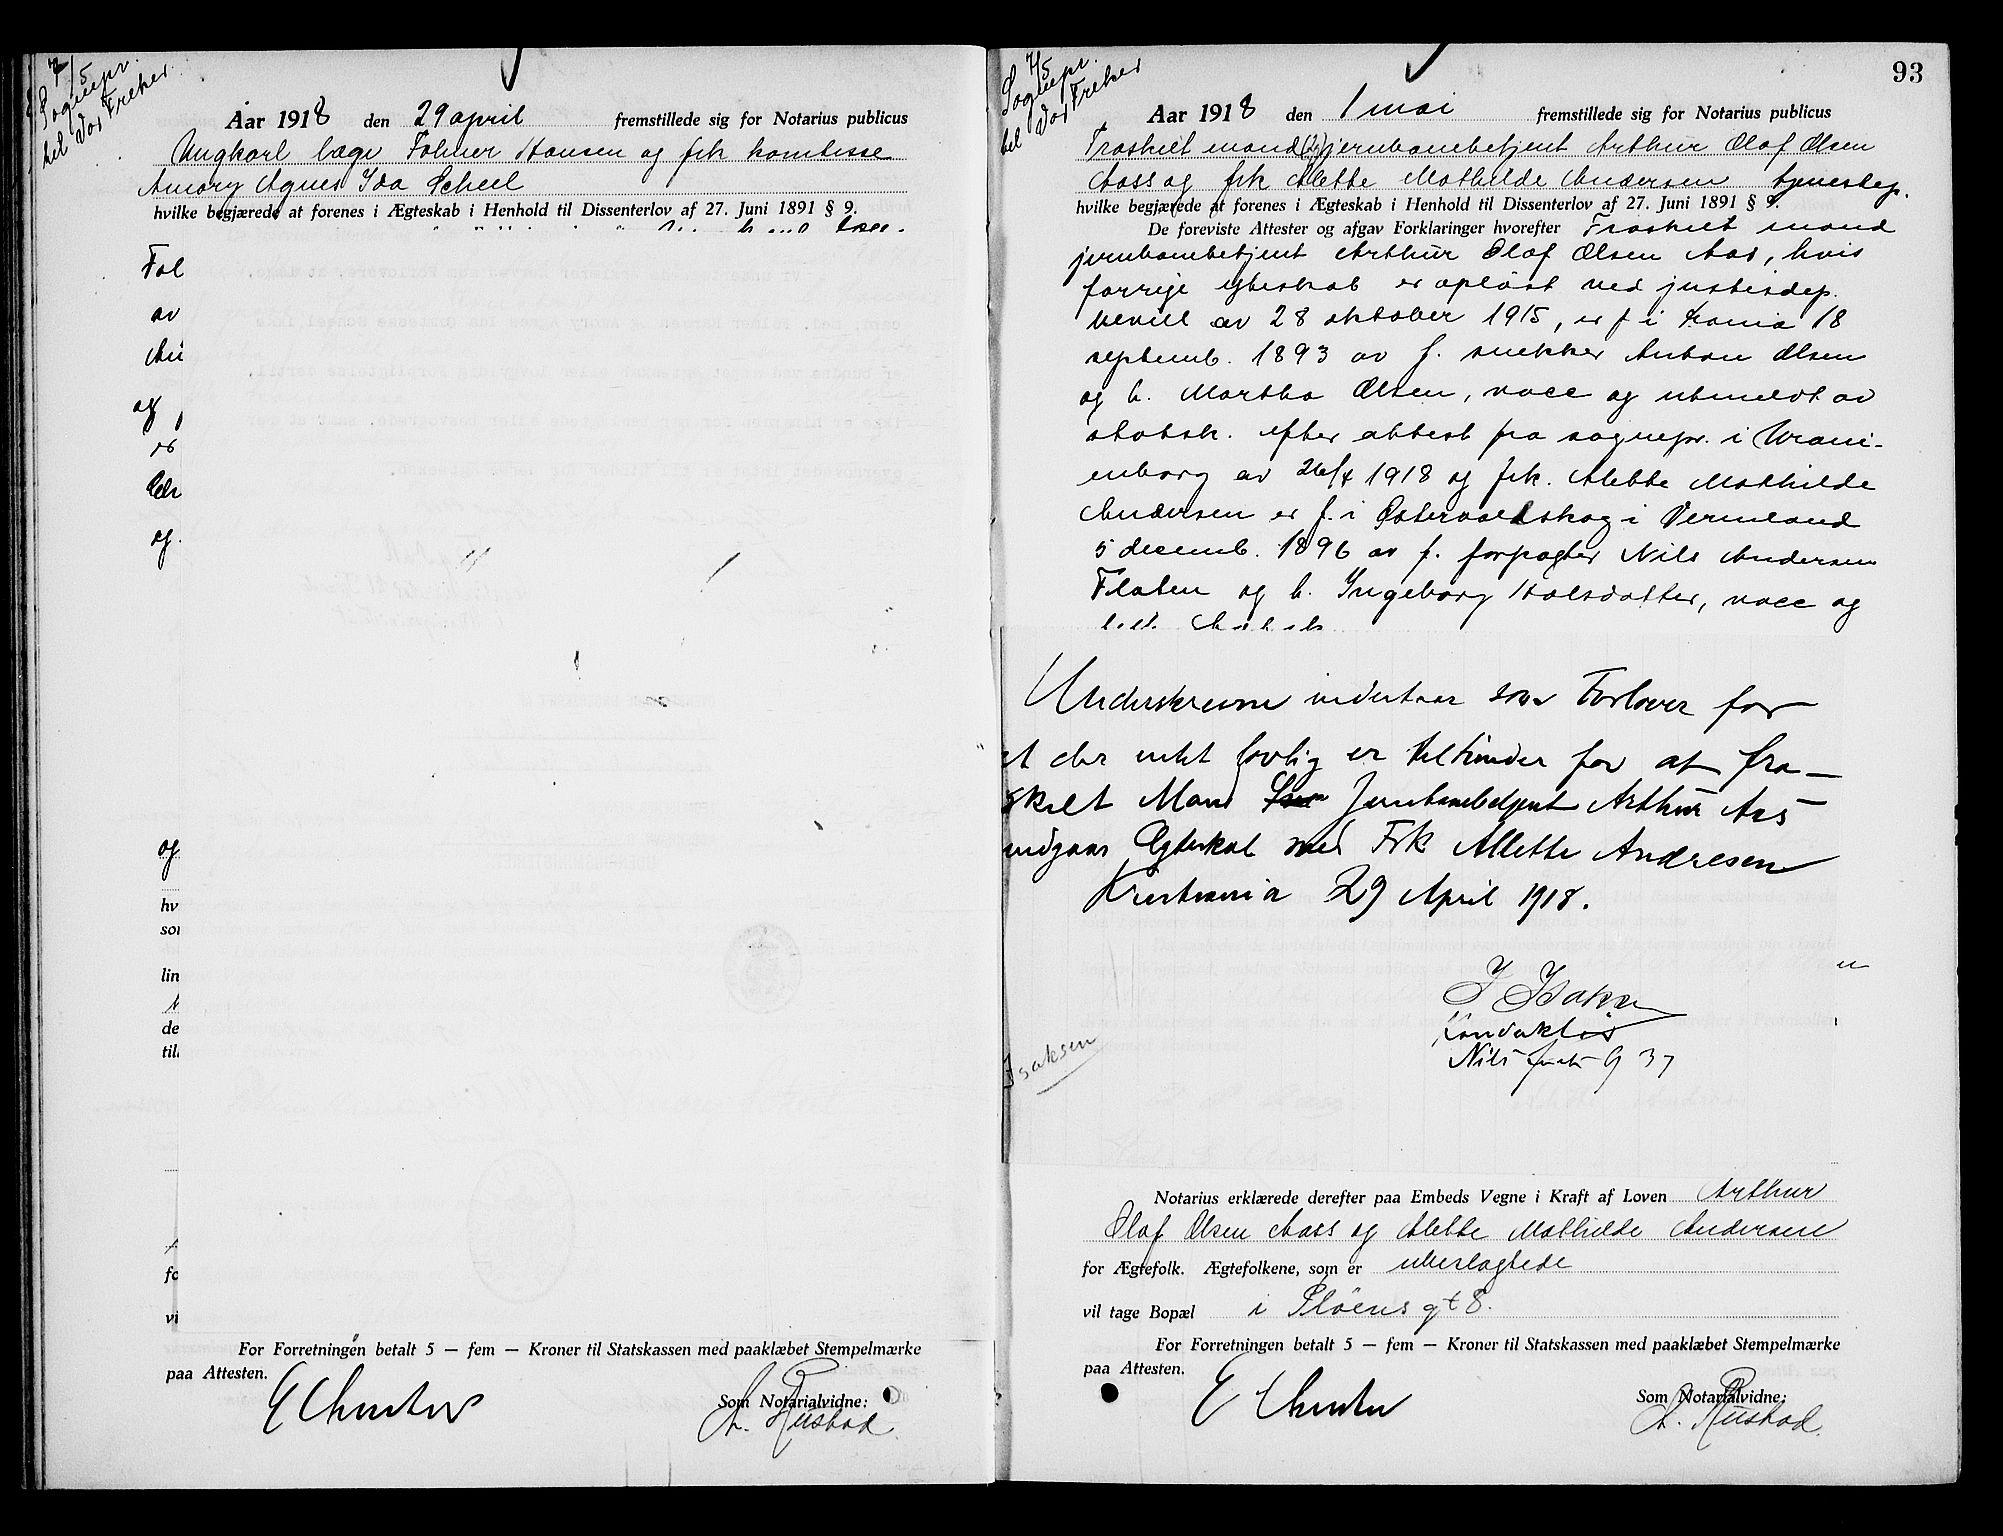 7/5
Sognepr.
til Vor Frelser
Aar 1918 den 29 april fremstillede sig for Notarius publicus
Ungkarl læge Folmer Hansen og frk komtesse
Amory Agnes Ida Scheel
hvilke begjærede at forenes i Ægteskab i Henhold til Dissenterlov af 27. Juni 1891 § 9.
Fol
av
og
er
og
og
hv
lin
de
fo
vi
For Forretningen betalt 5 — fem — Kroner til Statskassen med paaklæbet Stempelmærke
paa Attesten.
Som Notarialvidne:
A. Rustad
93
7/5
Sognepr.
til Vor Frelser
Aar 1918 den 1 mai fremstillede sig for Notarius publicus
Fraskilt mand jernbanebetjent Arthur Olaf Olsen
Aass og frk Alette Mathilde Andersen
hvilke begjærede at forenes i Ægteskab i Henhold til Dissenterlov af 27. Juni 1891 § 9.
De foreviste Attester og afgav Forklaringer hvorefter Fraskilt mand
jernbanebetjent Arthur Olaf Olsen Aas, hvis
forrige egteskab er opløst ved justisdep.
bevill av 28 oktober 1915, er f i Krania 18
septemb. 1893 av f. snekker Anton Olsen
og h. Martha Olsen, vacc og utmeldt av
statsk. efter attest fra sognepr. i Urani-
enborg av 26/4 1918 og frk. Alette Mathilde
Andersen er f. i Østervallskog i Vermland
5 decemb. 1896 av f. forpagter Nils Andersen
Flaten og h. Ingeborg Halsdatter, vacc og
Underskrevne indestaar som Forlover for
at der intet lovlig er til hinder for at fra-
skilt Mand Jernbanebetjent Arthur Aas
indgaar Egteskab med Frk Allette Andresen
Kristiania 29 April 1918.
I Isaksen
Konduktør
Nils Juels g 37
Isaksen
Notarius erklærede derefter paa Embeds Vegne i Kraft af Loven Arthur
Olaf Olsen Aass og Alette Mathilde Andersen
for Ægtefolk. Ægtefolkene, som er ubeslagtede
vil tage Bopæl i Pløens gt 8.
For Forretningen betalt 5 — fem — Kroner til Statskassen med paaklæbet Stempelmærke
paa Attesten.
Som Notarialvidne:
A. Rustad